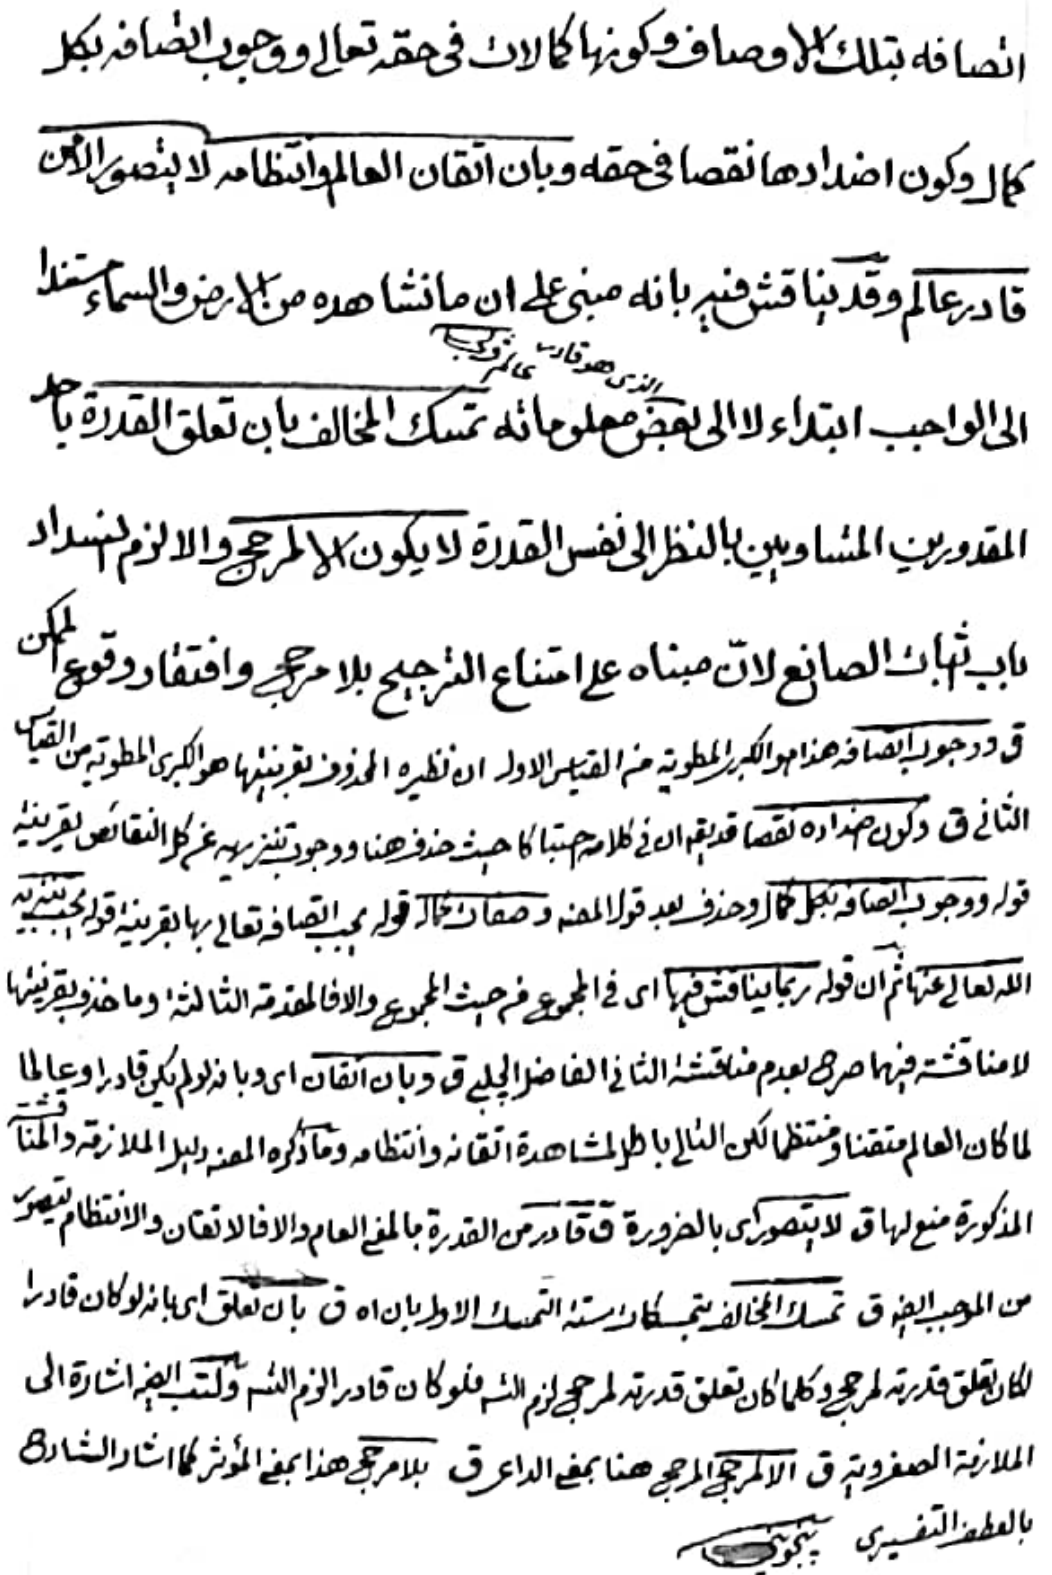 اتصافه بتلك الاوصاف وكونها كمالات فى حقه تعالى ووجوب اتصافه بكل
كمال وكون اضدادها نقصا فى حقه وبان اتقان العالم وانتظامه لا يتصور الا من
قادر عالم وقد يناقش فيه بانه مبنى على ان ما نشاهده من الارض والسماء مستندا
الذى هو قادر
الى الواجب ابتداء لا الى بعض معلوماته تمسك المخالف بان تعلق القدرة باحد
المقدورين المتساويين بالنظر الى نفس القدرة لا يكون الا لمرجح والا لزم انسداد
باب اثبات الصانع لانّ مبناه على امتناع الترجيح بلا مرجح وافتقار وقوع الممكن
ق ووجوب اتصافه هذا هو الكبرى المطوية من القياس الاول ان نظيره المحذوف بقرينتها هو الكبرى المطوية من القياس
الثانى ق وكون اضداده نقصا قد يقه ان فى كلامه احتباكا حيث حذف هنا ووجوب تنزيهه عن كل النقائص بقرينة
قوله ووجوب اتصافه بكل كمال وحذف بعد قول المصنه وصفات كمال قوله يجب اتصافه تعالى بها بقرينة قوله يجب تنزيه
الله تعالى عنها ثم ان قوله ربما يناقش فيها اى فى المجموع من حيث المجموع والا فالمقدمة الثالثة وما حذف بقرينتها
لا مناقشة فيهما صرح بعدم مناقشة الثانى الفاضل الچلبى ق وبان اتقان اى وبانه لو لم يكن قادرا وعالما
لما كان العالم متقنا ومنتظما لكن التالى باطل لمشاهدة اتقانه وانتظامه وما ذكره المصنه دليل الملازمة والمناقشة
المذكورة منع لها ق لا يتصور اى بالضرورة ق قادر من القدرة بالمعنى العام والا فالاتقان والانتظام يتصور
من الموجب ايضه ق تمسك المخالف بتمسكات ستة التمسك الاول بان اه ق بان تعلق اى بانه لو كان قادرا
لكان تعلق قدرته لمرجح وكلما كان تعلق قدرته لمرجح لزم التسه فلو كان قادرا لزم التسه وكتب ايضه اشارة الى
الملازمة الصغروية ق الا لمرجح المرجح هنا بمعنى الداعى ق بلا مرجح هذا بمعنى المؤثر كما اشار الشارح
بالعطف التفسيرى پنجوينى